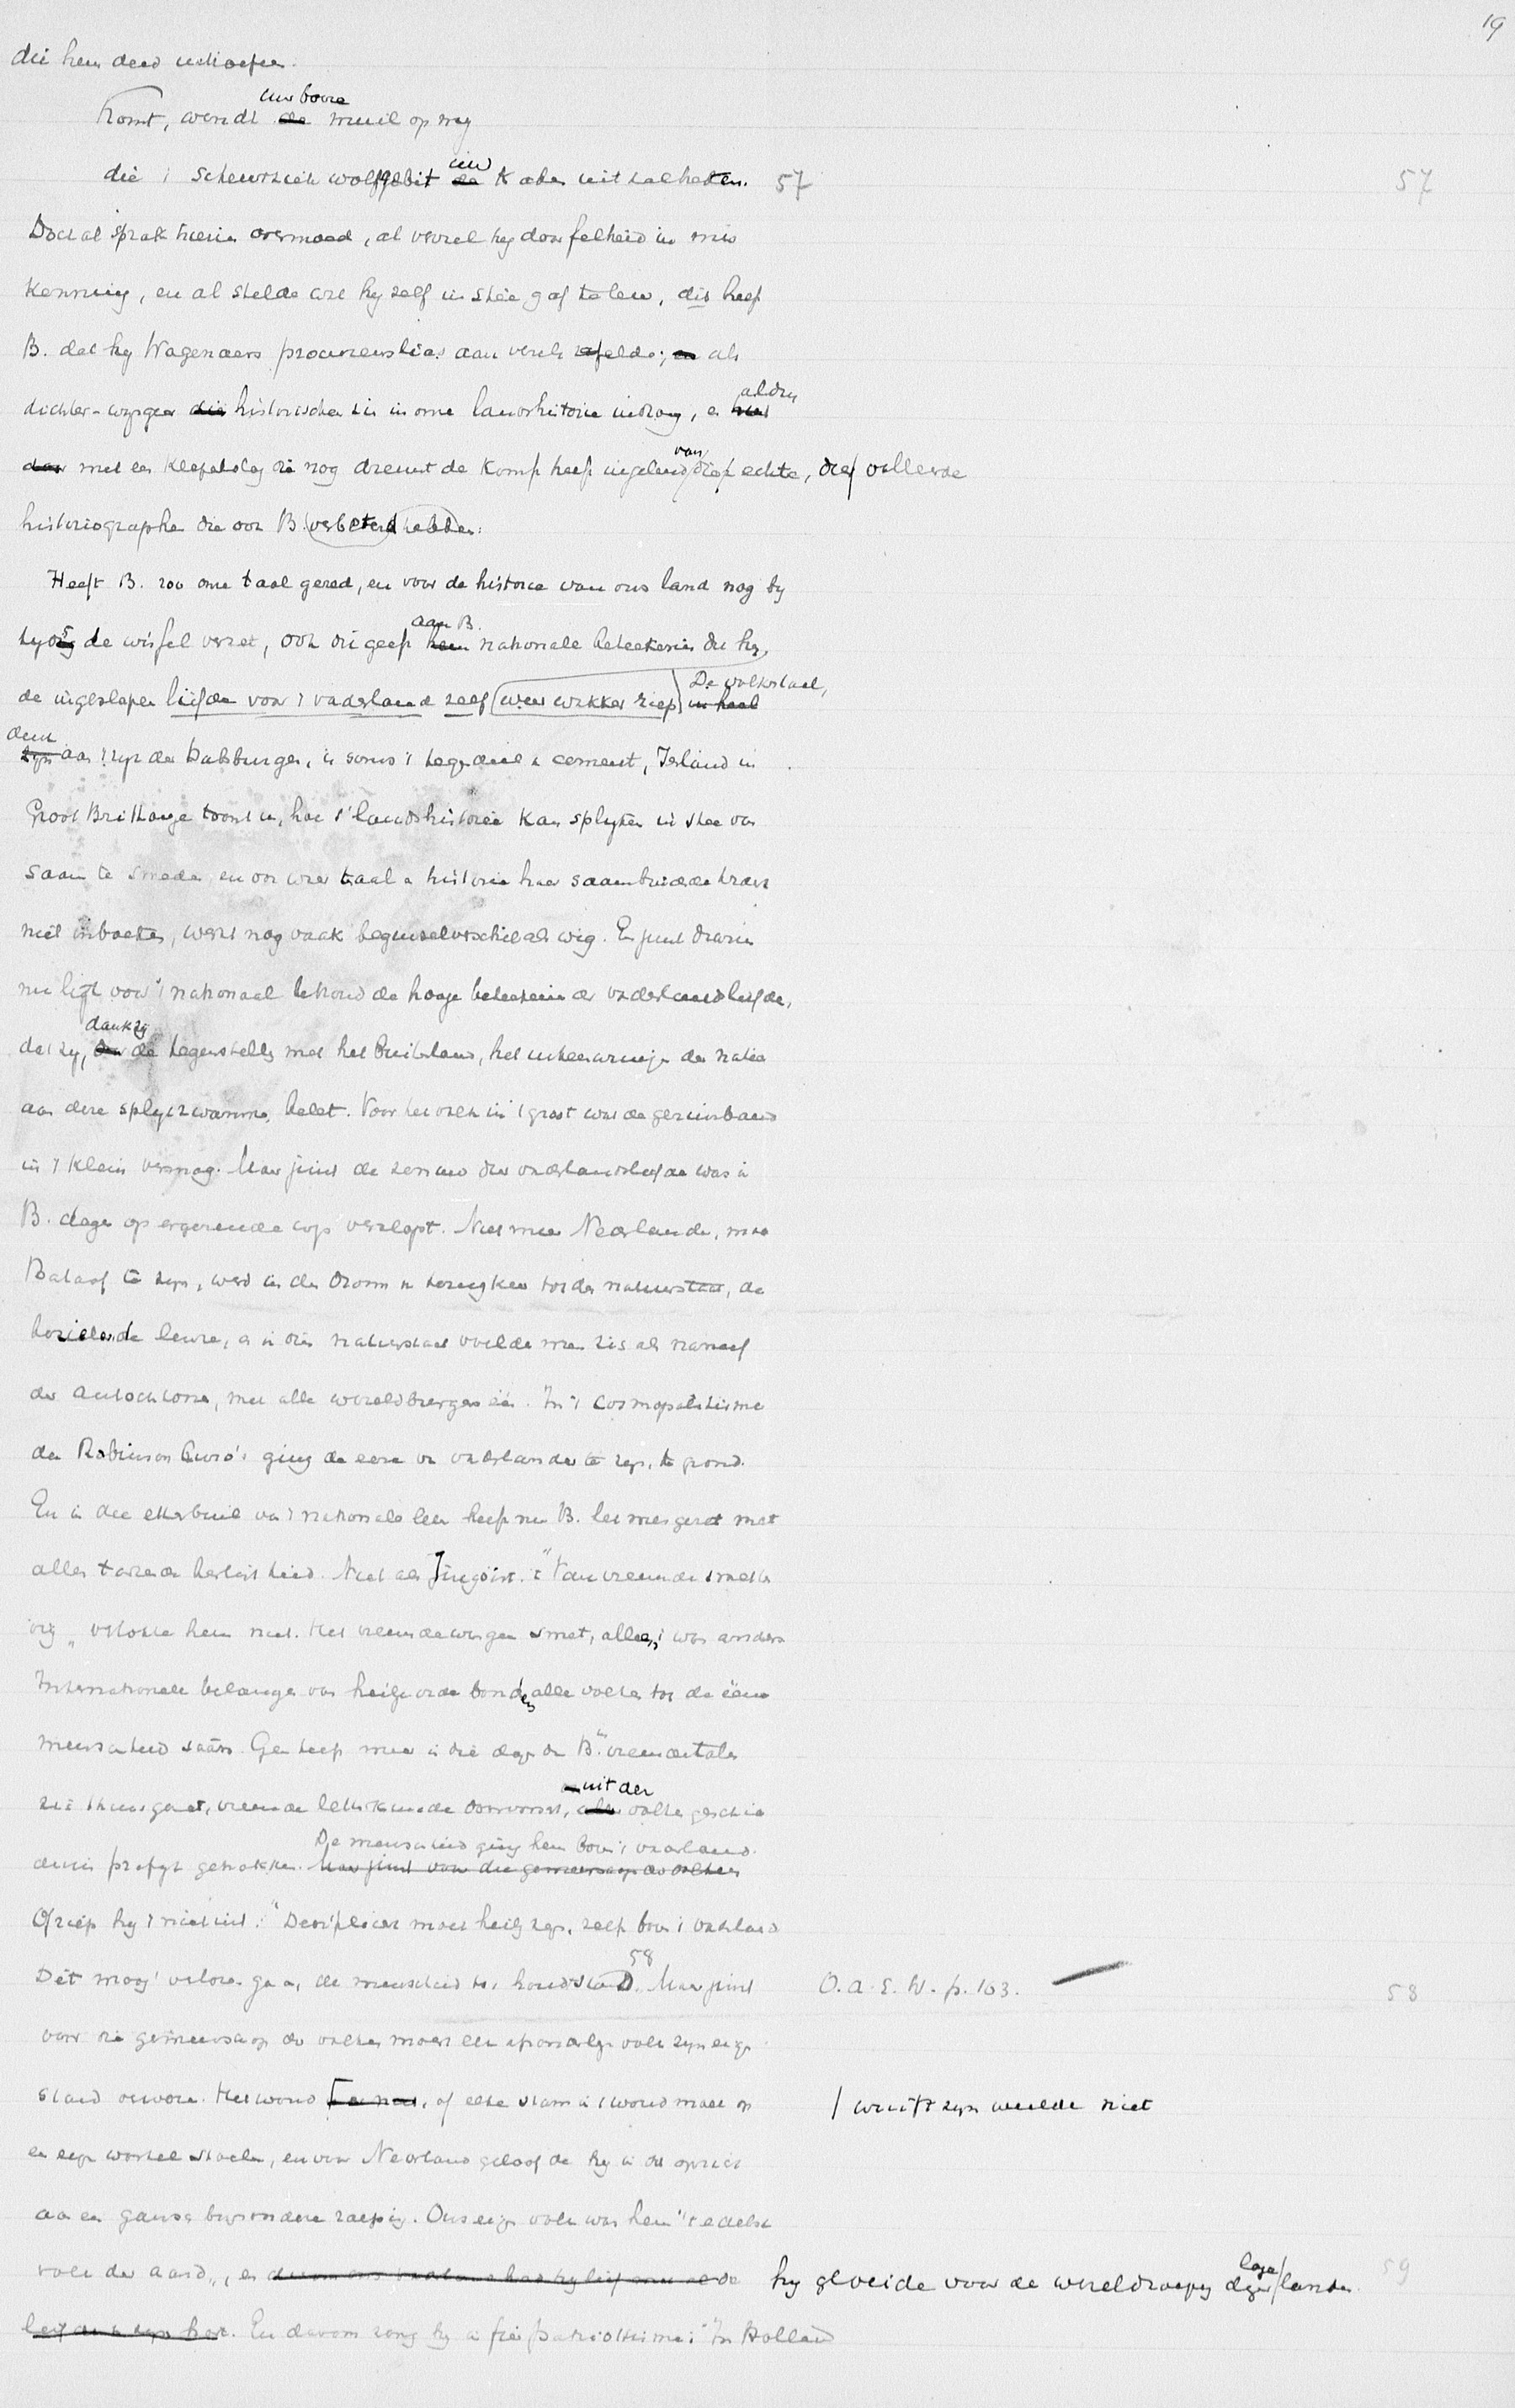 19
die hem deed uitroepen.
Komt, wendt uw booze muil op mij
die 't scheurziek wolfsgebit uw kaken uit zal heten. 57 57
Doch al sprak hierin overmoed, al verviel hij door felheid in mis
kenning, en al stelde wat hij zelf in steê gaf te leur, dit heeft
B. dat hij Wagenaers aan ; als
dichter-wijsgeer historischen zin in onze landshistorie indroeg, en aldus
met een klepelslag die nog dreunt de komst heeft ingeluid van diep echte, diep
historiographen die ook B. verbeterd hebben.
Heeft B. zoo onze taal gered, en voor de historie van ons land nog bij
tijds de wissel verzet, ook dit geeft aan B. nationale beteekenis dat hij,
de ingeslapen liefde voor 't vaderland zelf weer wakker riep De volkstaal,
denk aan 't rijk der Habsburgers, is soms 't tegendeel van cement, Ierland in
Groot Brittanje toont u, hoe 's lands historie kan splijten in stee van
saam te smeden, en ook waar taal en historie haar saambindende kracht
niet inboeten, werkt nog vaak beginselverschil als wig. En juist daarin
nu ligt voor 't nationaal behoud de hooge beteekenis der vaderlandsliefde,
dat zij, dank zij de tegenstelling met het buitenland, het uiteenwringen der natie
aan deze splijtzwamme, belet. Voor het volk in 't groot wat de gezinsband
in 't klein vermag. Maar juist de zenuw der vaderlandsliefde was in
B. dagen op ergerende wijs verslapt. Niet meer Nederlander, maar
Bataaf te zijn, werd in den droom van terugkeer tot den natuurstaat, de
bezielende leuze, en in dien natuurstaat voelde men zich als naneef
der autochtonen, met alle wereldburgers één. In 't cosmopolitisme
der Robinson Crusoë's ging de eere van vaderlander te zijn, te grond.
En in die etterbuil van 't nationale leven heeft nu B. het mes gezet met
alle beslistheid. Niet als Jingoïst. "Van vreemde smetten
vrij" verlokte hem niet. Het vreemde wezen smet, alles, 't was anders
Internationale belangen van heilige orde bonden alle volken tot de ééne
menschheid saâm. Geen heeft meer in die dagen dan B. vreemde talen
zich thuisgemaakt, vreemde letterkunde doorvorscht, uit der volken geschie
denis profijt getrokken. De menschheid ging hem boven 't vaderland.
Of riep hij 't niet uit: "De plicht moet heilig zijn, zelfs boven 't vaderland
Dit moog' verloren gaan, de menschheid houdt stand. 58 Maar juist O. a. E. W. p. 103. 58
voor die gemeenschap der volken moest elk afzonderlijk volk zijn eigen
stand bewaren. Het woud , of elke stam in 't woud moet op
een eigen wortel stoelen, en voor Neerland geloofde hij in dit opzicht
aan een gansch bijzondere roeping. Ons eigen volk was hem "'t edelst
volk der aard", en hij gloeide voor de wereldroeping dezer lage landen. 59
En daarom zong hij in fier patriottisme: "In Holland